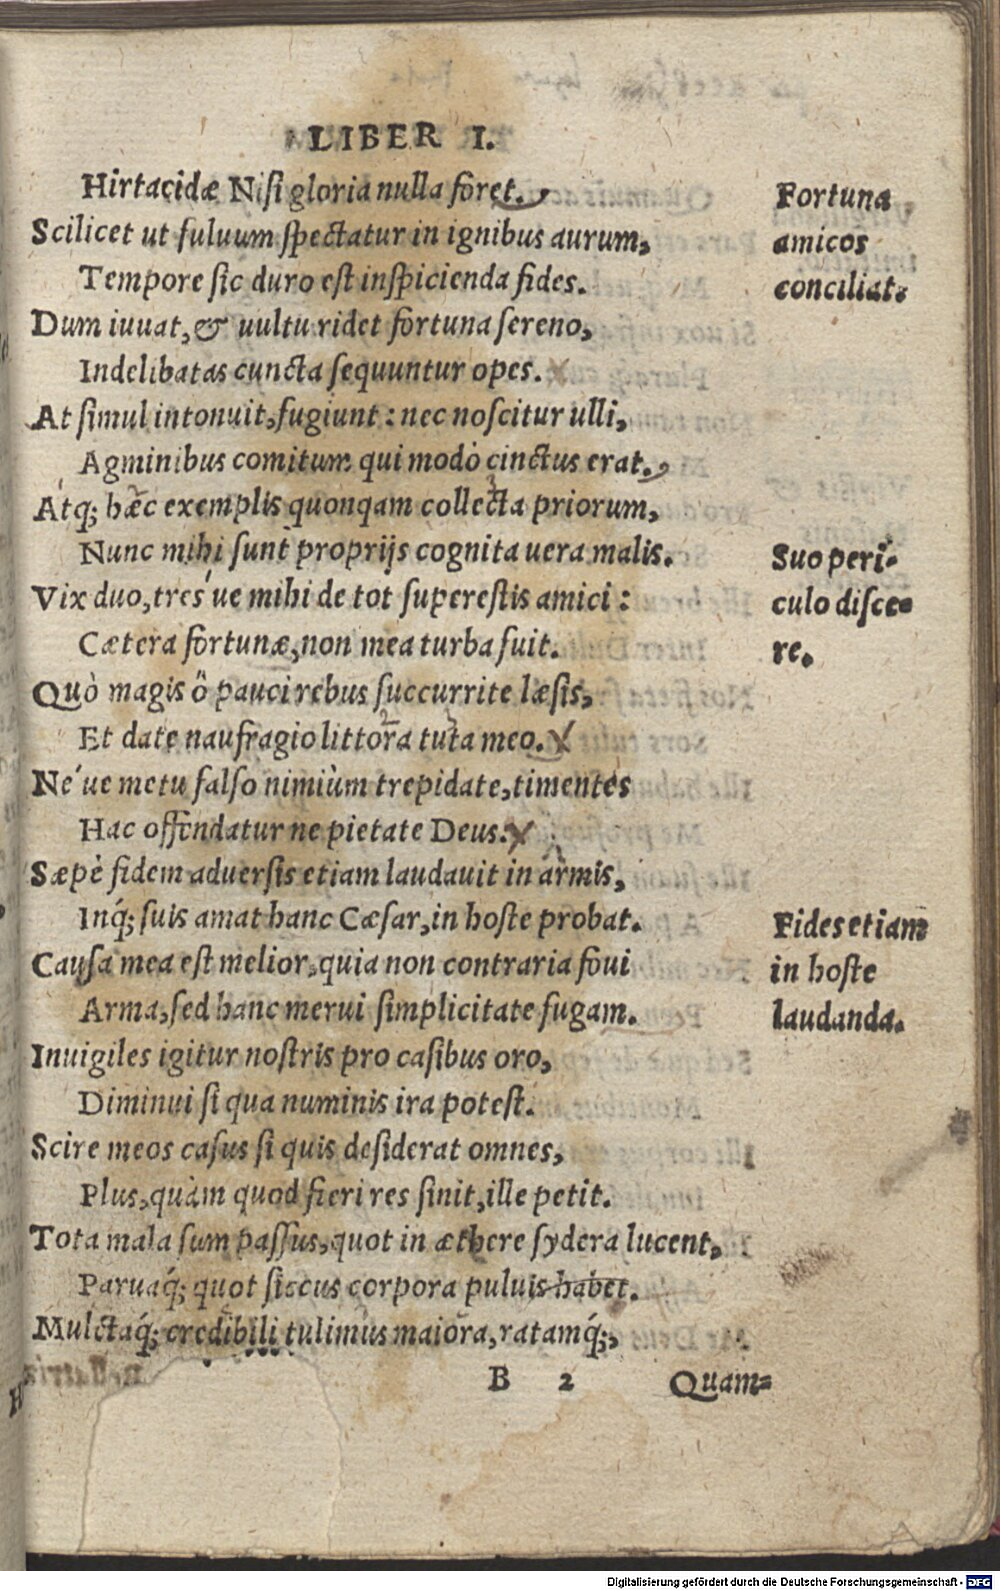 LIBER I.
Hirtacidæ Nisi gloria nulla foret.
Scilicet ut fuluum spectatur in ignibus aurum,
Tempore sic duro est inspicienda fides.
Dum iuuat, & uultu ridet fortuna sereno,
Indelibatas cuncta sequuntur opes.
At simul intonuit, fugiunt: nec noscitur ulli,
Agminibus comitum qui modò cinctus erat.
Atq; hæc exemplis quonqam collecta priorum,
Nunc mihi sunt proprijs cognita uera malis.
Vix duo, tres´ue mihi de tot superestis amici:
Cætera fortunæ, non mea turba fuit.
Quò magis ô pauci rebus succurrite læsis,
Et date naufragio littora tuta meo.
Ne´ue metu falso nimiùm trepidate, timentes
Hac offendatur ne pietate Deus.
Sæpè fidem aduersis etiam laudauit in armis,
Inq́; suis amat hanc Cæsar, in hoste probat.
Causa mea est melior, quia non contraria foui
Arma, sed hanc merui simplicitate fugam.
Inuigiles igitur nostris pro casibus oro,
Diminui si qua numinis ira potest.
Scire meos casus si quis desiderat omnes,
Plus, quàm quod fieri res sinit, ille petit.
Tota mala sum passus, quot in æthere sydera lucent,
Paruaq́; quot siccus corpora puluis habet.
Mulctaq́; credibili tulimus maiora, ratamq́;,
B 2 Quam-
Fortuna
amicos
conciliat.
Suo peri-
culo disce-
re.
Fides etiam
in hoste
laudanda.
Digitalisierung gefördert durch die Deutsche Forschungsgemeinschaft - DFG